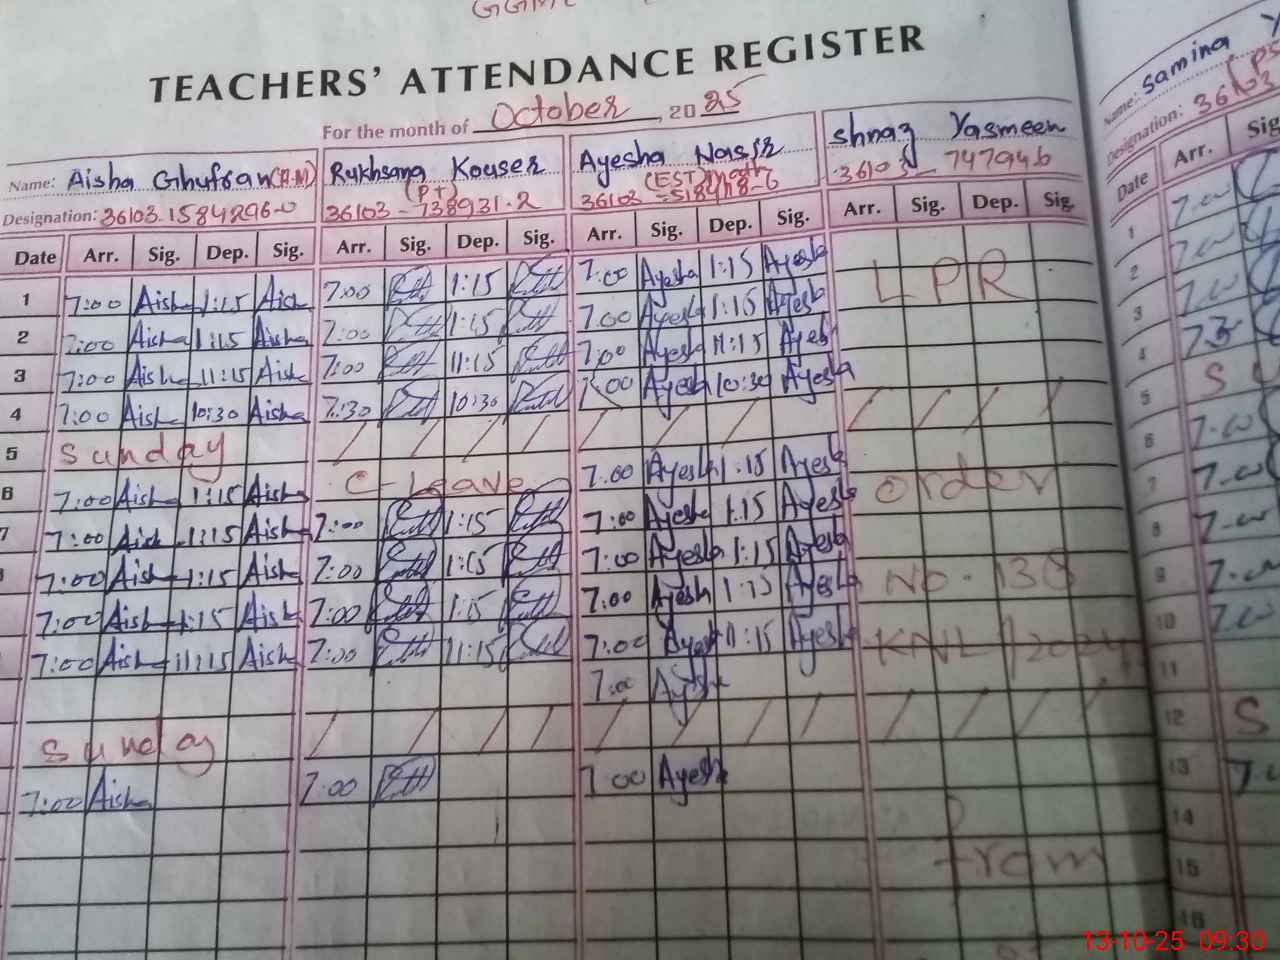 TEACHERS' ATTENDANCE REGISTER
For the month of October, 2025
Name: Aisha Ghufran (H.M) Rukhsana Kouser Ayesha Nasir Shnaz Yasmeen Name: Samina
(PT) (EST) math
Designation: 36103-1584296-0 36103-738931-2 36103-518418-6 747946 Designation: 36103
Date Arr. Sig. Dep. Sig. Arr. Sig. Dep. Sig. Arr. Sig. Dep. Sig. Arr. Sig. Dep. Sig. Date Arr. Sig
1 7:00 Aisha 1:15 Aish 7:00 1:15 7:00 Ayesha 1:15 Ayesha L P R 1 7.00
2 7:00 Aisha 1:15 Aisha 7:00 1:15 7:00 Ayesha 1:15 Ayesha 2 7.00
3 7:00 Aisha 11:15 Aisha 7:00 11:15 7:00 Ayesha 11:15 Ayesh 3 7.00
4 7:00 Aisha 10:30 Aisha 7:30 10:30 7:00 Ayesha 10:30 Ayesha 4
5 Sunday / / / / / / / / / / / / 5 S
6 7:00 Aisha 1:15 Aisha C-leave 7:00 Ayesha 1:15 Ayesha order 6 7.00
7 7:00 Aisha 1:15 Aisha 7:00 1:15 7:00 Ayesha 1:15 Ayesha 7 7.00
7:00 Aisha 1:15 Aisha 7:00 1:15 7:00 Ayesha 1:15 Ayesha No. 138 8 7.00
7:00 Aisha 1:15 Aisha 7:00 1:15 7:00 Ayesh 1:15 Ayesha 9 7.00
7:00 Aisha 11:15 Aisha 7:00 11:15 7:00 Ayesha 11:15 Ayesha KNL/2024 10 7.00
7:00 Ayesha 11
Sunday / / / / / / / / / / / / 12 S
7:00 Aisha 7:00 7:00 Ayesha 13 7.0
14
from 15
16
13-10-25 09:30